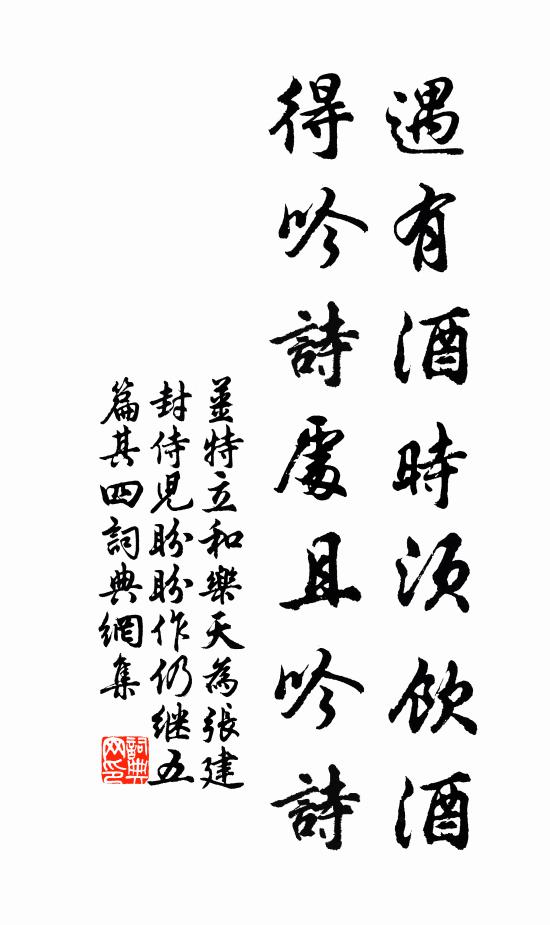 遇有酒時須飲酒
得吟詩處且吟詩
姜特立和樂天為張建
封侍兒盼盼作仍繼五
篇其四詞典網集
詞典
网印